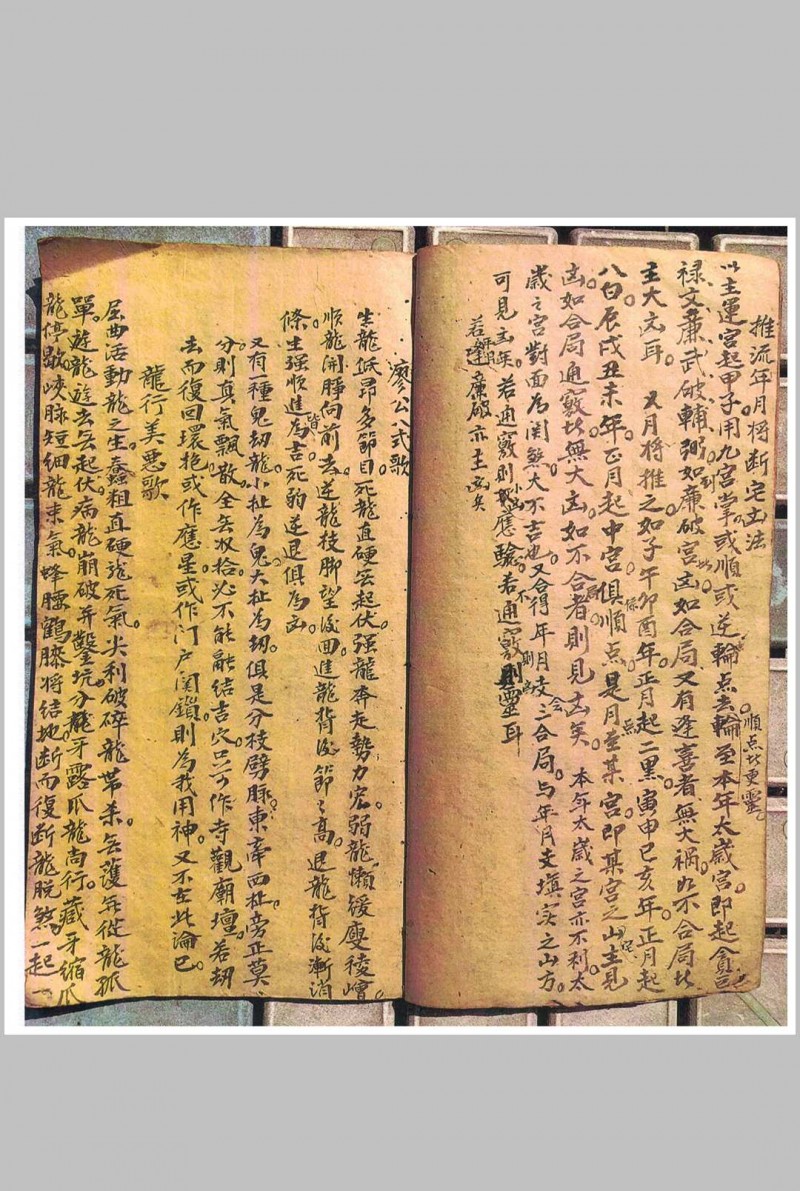 推流年月將断宅凶法
以主運宮起甲子用九宮掌或順或逆輪点去輪至本年太歲宮即起貪巨
順点此更靈
禄文廉武破輔弼如到廉破宮凶如合局又有逢喜者無大禍如不合局此
主大凶耳 又月将推之如子午卯酉年正月起二黑寅申巳亥年正月起
八白辰戌丑未年正月起中宮俱順点是月至某宮即某宮之山主見
凶如合局通竅此無大凶如不合者則見凶矣 本年太歲之宮亦不利太
歲之宮對面為関煞大不吉也又合得年月支三合局与年月支填实之山方
可見凶矣若通竅則小凶應驗若不通竅則靈耳
若逢廉破亦主凶矣
廖公八式歌
生龍低昂多節目死龍直硬無起伏强龍奔走勢力宏弱龍懶緩瘦稜嶒
順龍開睜向前去逆龍枝脚望後回進龍背後節々高退龍背後漸消
條生强順進為皆吉死弱逆退俱為凶
又有一種鬼刼龍小扯為鬼大扯為刼俱是分枝劈脉東牽西扯旁正莫
分則真氣飄散全無收拾必不能融結吉穴只可作寺觀廟壇若刼
去而復回環抱或作應星或作门户関鎖則為我用神又不在此論巳
龍行美惡歌
屈曲活動龍之生蠢粗直硬龍死氣尖利破碎龍帶杀無護無從龍孤
單遊龍遊去無起伏病龍崩破并鑿坑分龍牙露爪龍尚行藏牙縮爪
龍停歇峽脉短細龍束氣蜂腰鶴膝将結地断而復断龍脱煞一起一